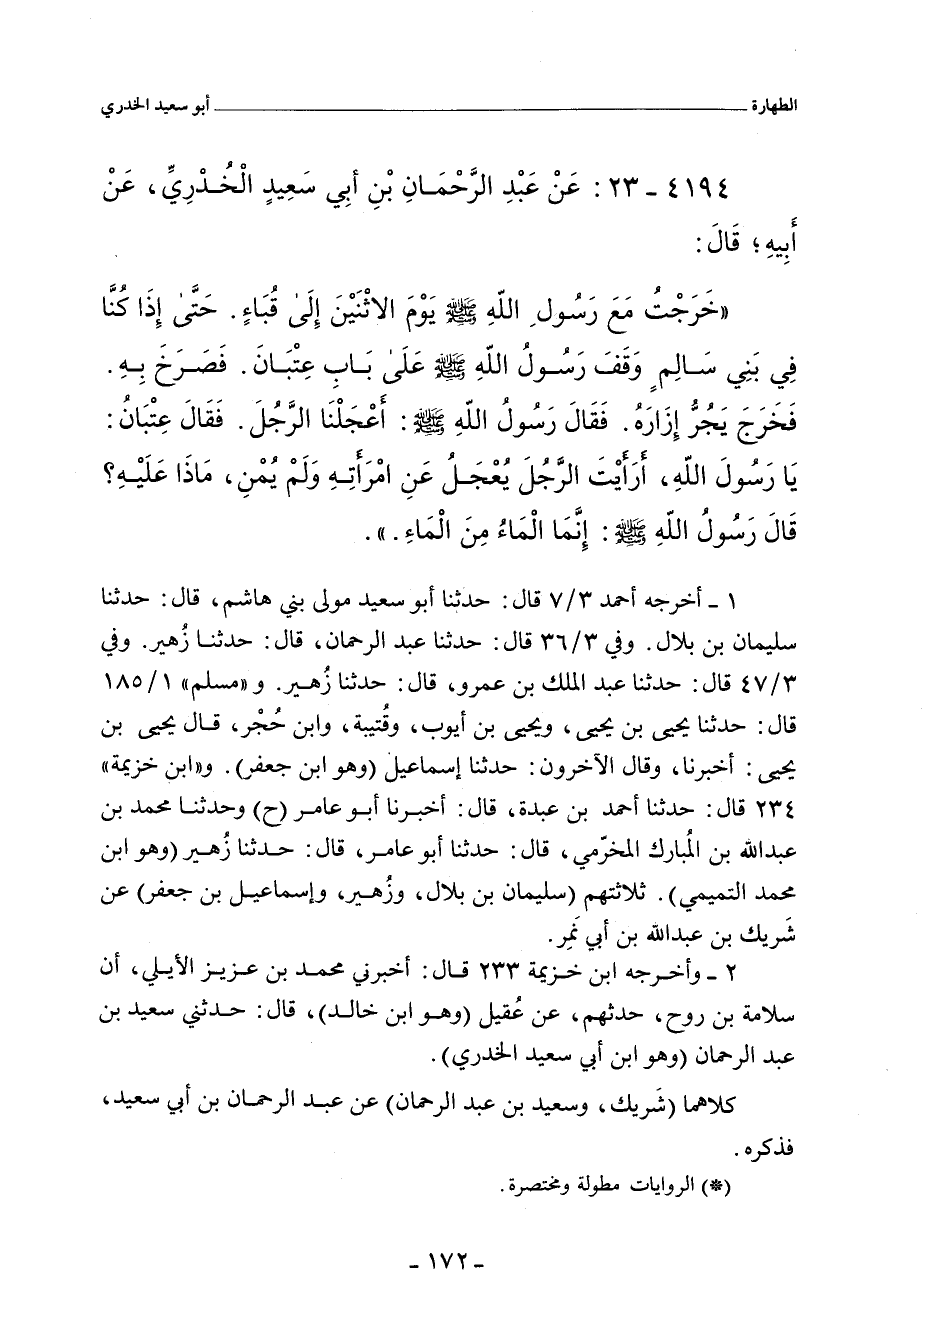 الطهارة ــــــــــ أبو سعيد الخدري
٤١٩٤ ـ ٢٣ : عَنْ عَبْدِ الرَّحْمَـانِ بْنِ أبي سَعِيدٍ الْخُـدْرِيِّ ، عَنْ
أَبِيهِ ؛ قَالَ :
«خَرَجْتُ مَعَ رَسُولِ اللّهِ ﷺ يَوْمَ الاثْنَيْنَ إِلَىٰ قُبَاءٍ . حَتَّىٰ إِذَا كُنَّا
فِي بَنِي سَـالِمٍ وَقَفَ رَسُـولُ اللّهِ ﷺ عَلَىٰ بَـابِ عِتْبَـانَ . فَصَـرَخَ بِـهِ .
فَخَرَجَ يَجُرُّ إِزَارَهُ . فَقَالَ رَسُولُ اللّهِ ﷺ : أَعْجَلْنَا الرَّجُلَ . فَقَالَ عِتْبَانُ :
يَا رَسُولَ اللّهِ ، أَرَأَيْتَ الرَّجُلَ يُعْجَـلُ عَنِ امْرَأَتِـهِ وَلَمْ يُمْنِ ، مَاذَا عَلَيْـهِ؟
قَالَ رَسُولُ اللّهِ ﷺ : إِنَّمَا الْمَاءُ مِنَ الْمَاءِ . » .
١ ـ أخرجه أحمد ٧/٣ قال : حدثنا أبو سعيد مولى بني هاشم ، قال : حدثنا
سليمان بن بلال . وفي ٣٦/٣ قال : حدثنا عبد الرحمان ، قال : حدثنـا زُهير . وفي
٤٧/٣ قال : حدثنا عبد الملك بن عمرو ، قال : حدثنا زُهـير . و «مسلم» ١٨٥/١
قال : حدثنا يحيى بن يحيى ، ويحيى بن أيوب ، وقُتيبة ، وابن حُجْر ، قـال يحيى بن
يحيى : أخبرنا ، وقال الآخرون : حدثنا إسماعيل (وهو ابن جعفر) . و«ابن خزيمة»
٢٣٤ قال : حدثنا أحمد بن عبدة ، قال : أخبـرنا أبـو عامـر (ح) وحدثنـا محمد بن
عبدالله بن المُبارك المخرّمي ، قال : حدثنا أبو عامـر ، قال : حـدثنا زُهـير (وهو ابن
محمد التميمي) . ثلاثتهم (سليمان بن بلال ، وزُهـير ، وإسماعيـل بن جعفر) عن
شَريك بن عبدالله بن أبي نَمِر .
٢ ـ وأخـرجه ابن خـزيمة ٢٣٣ قـال : أخبرني محمـد بن عـزيـز الأيـلي ، أن
سلامة بن روح ، حدثهم ، عن عُقيل (وهـو ابن خالـد) ، قال : حـدثني سعيد بن
عبد الرحمان (وهو ابن أبي سعيد الخدري) .
كلاهما (شَريك ، وسعيد بن عبد الرحمان) عن عبـد الرحمـان بن أبي سعيـد ،
فذكره .
(*) الروايات مطولة ومختصرة .
ـ ١٧٢ ـ